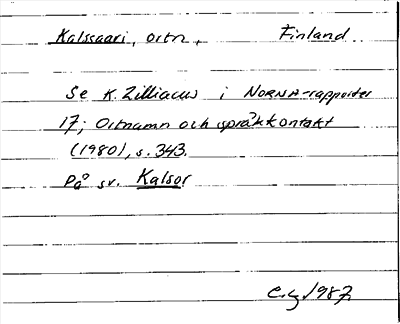 Kalssaari, ortn., Finland
Se K. Zilliacus i NORNA-rapporter
17; Ortnamn och språkkontakt
(1980), s. 343.
På sv. Kalsor
1987